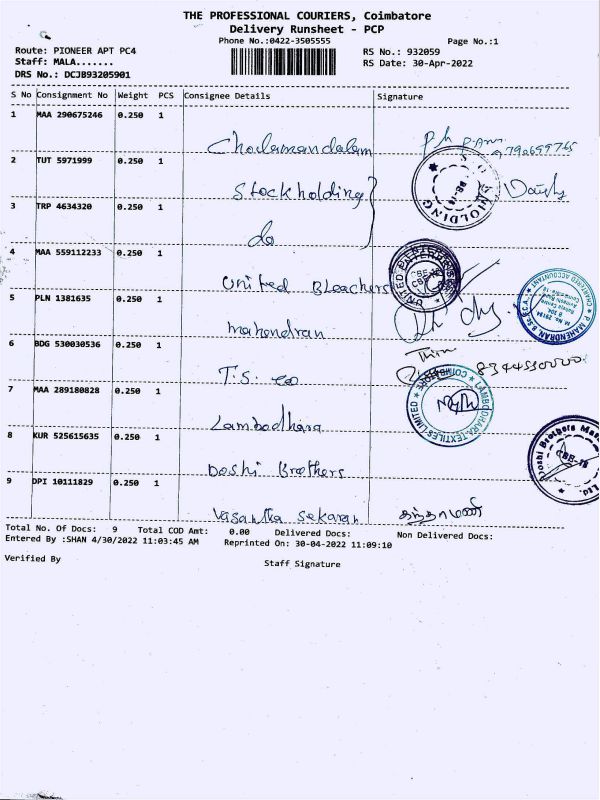 THE PROFESSIONAL COURIERS, Coimbatore
Delivery Runsheet - PCP
Phone No.:0422-3505555
Page No.:1
Route: PIONEER APT PC4
RS No.: 932059
Staff: MALA.......
RS Date: 30-Apr-2022
DRS No.: DCJB93205901
S No Consignment No Weight PCS Consignee Details Signature
1 MAA 290675246 0.250 1
Cholamandalam
2 TUT 5971999 0.250 1
Stockholding
3 TRP 4634320 0.250 1
do
4 MAA 559112233 0.250 1
United Bleachers
5 PLN 1381635 0.250 1
Mahendran
6 BDG 530030536 0.250 1
T.S. co
8344550000
7 MAA 289180828 0.250 1
LAMBODHARA TEXTILES LIMITED COIMBATORE
Lambodhara
8 KUR 525615635 0.250 1
Doshi Brothers
9 DPI 10111829 0.250 1
Vasantha Sekaran
Total No. Of Docs: 9 Total COD Amt: 0.00 Delivered Docs: Non Delivered Docs:
Entered By :SHAN 4/30/2022 11:03:45 AM Reprinted On: 30-04-2022 11:09:10
Verified By
Staff Signature